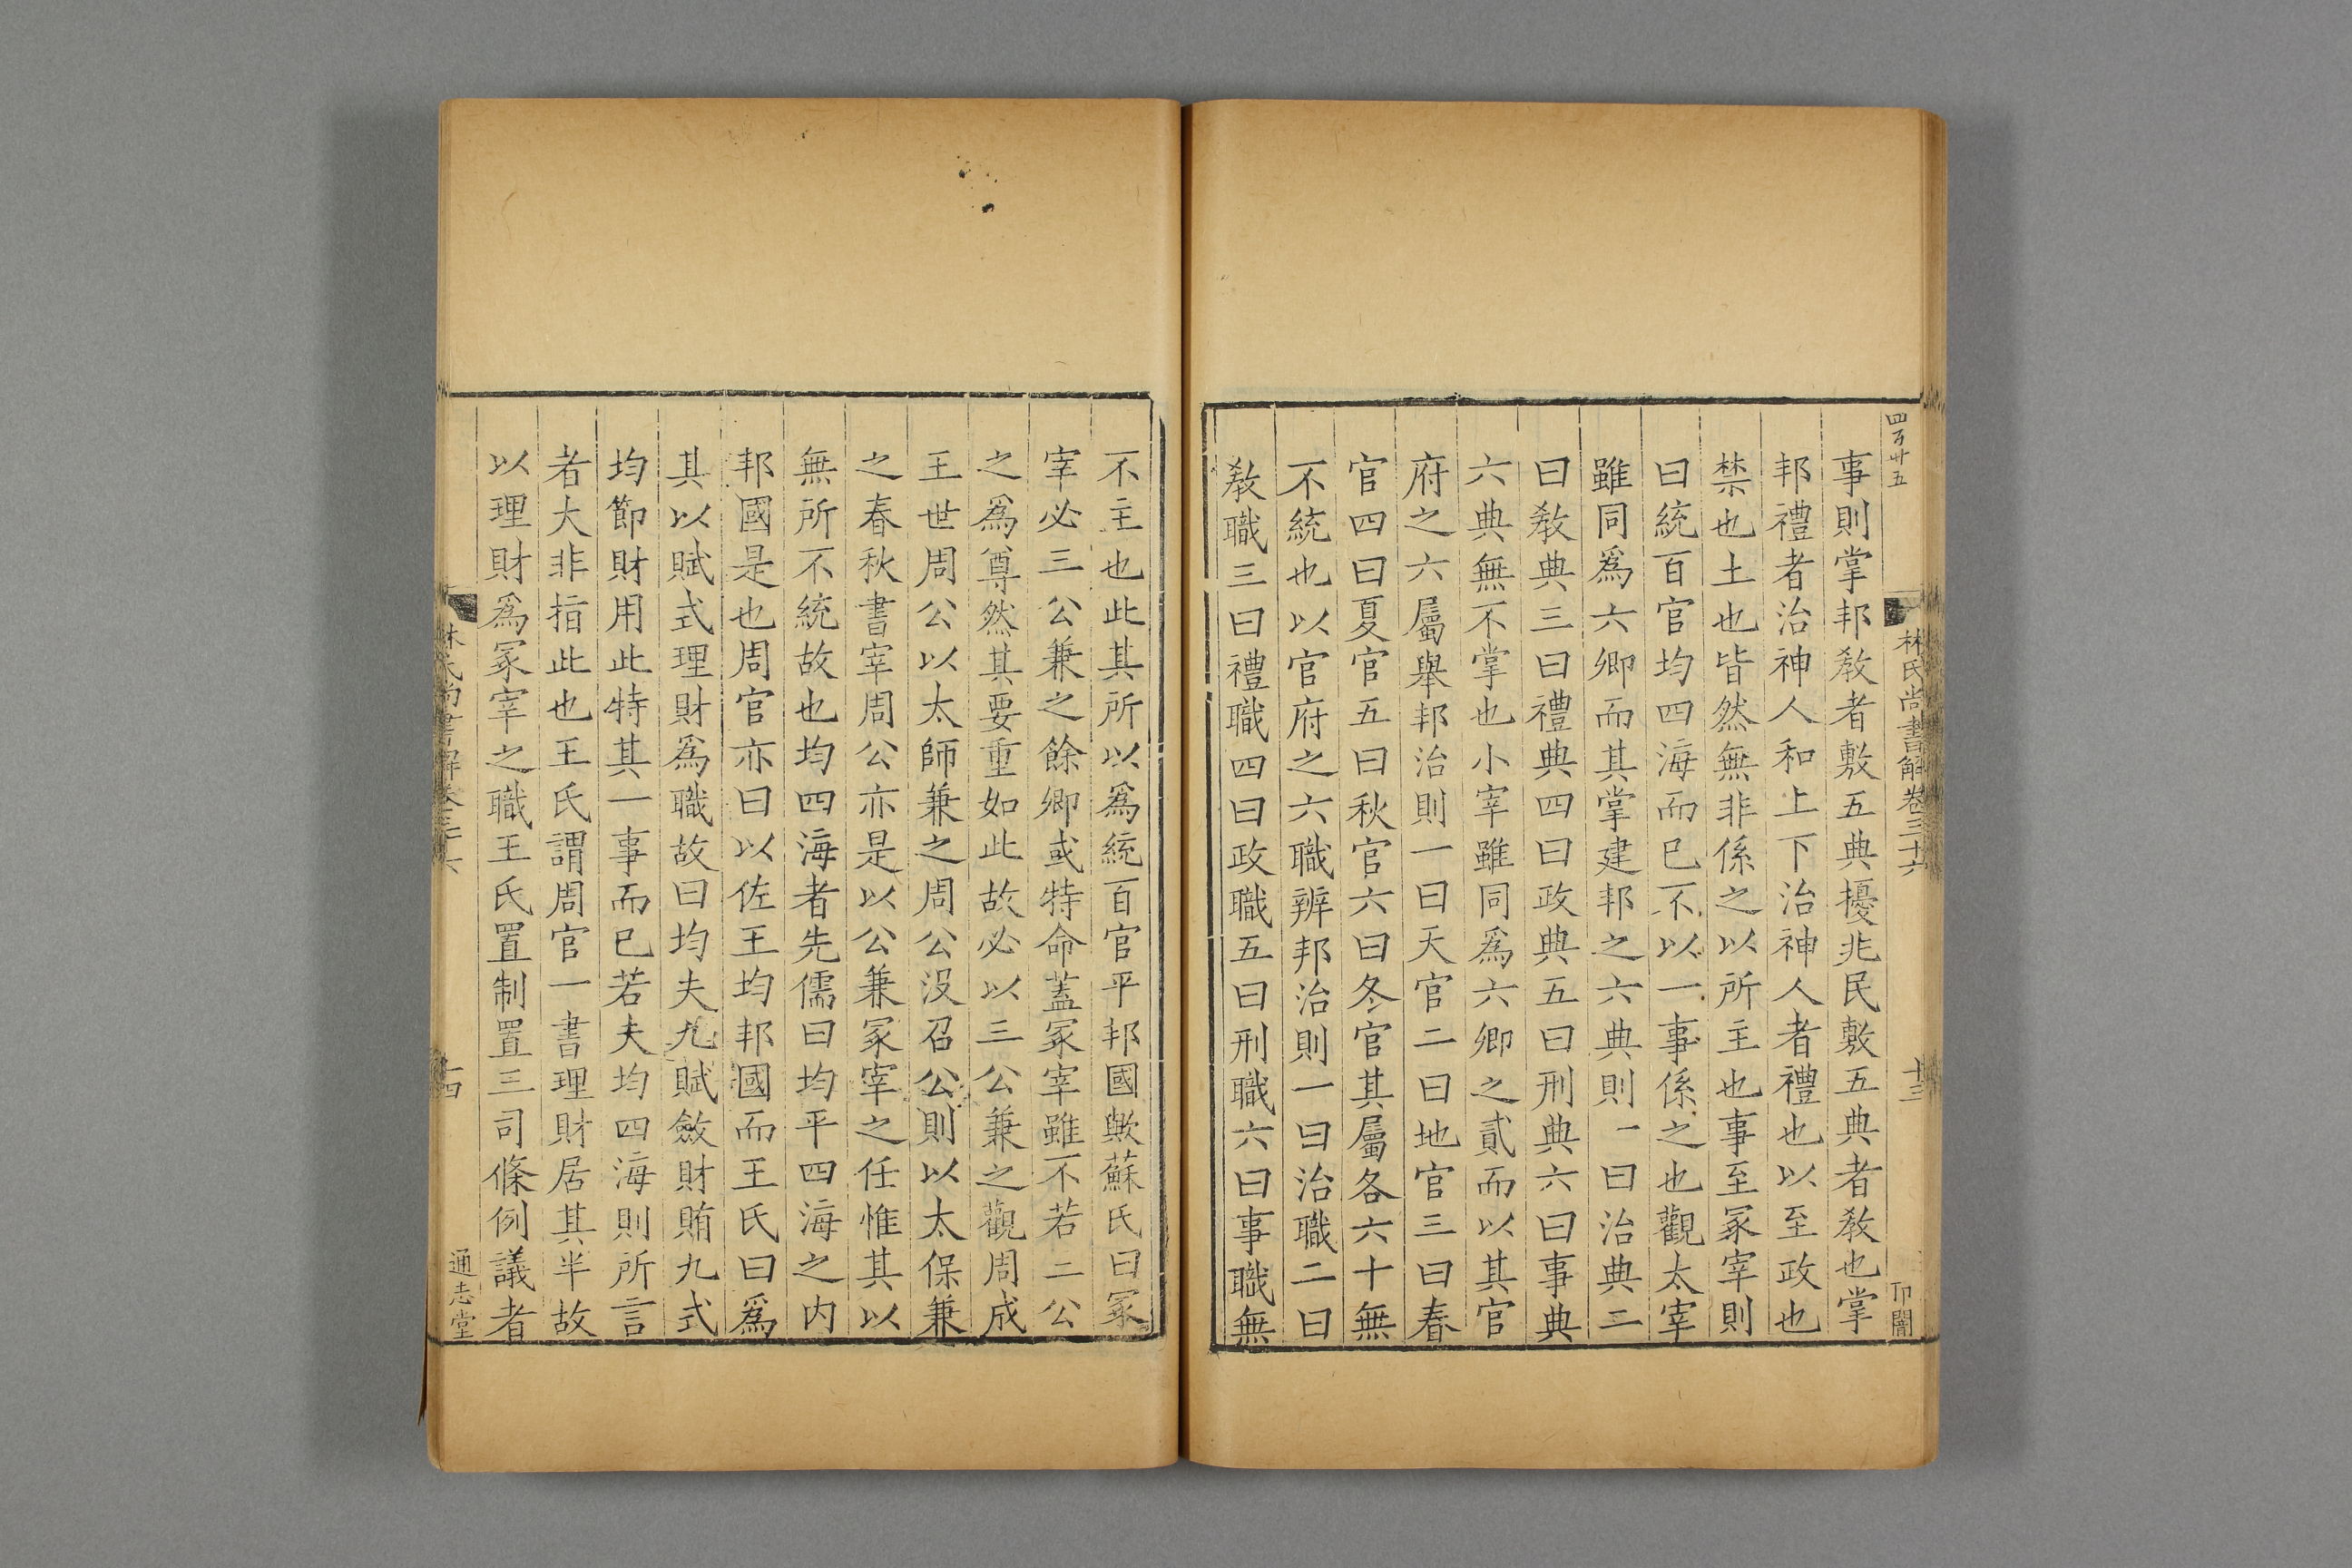 四百卅五
林氏尚書解卷三十六
十三
卬閵
事則掌邦敎者敷五典擾兆民敷五典者敎也掌
邦禮者治神人和上下治神人者禮也以至政也
禁也土也皆然無非係之以所主也事至冢宰則
曰統百官均四海而已不以一事係之也觀太宰
雖同爲六卿而其掌建邦之六典則一曰治典二
曰敎典三曰禮典四曰政典五曰刑典六曰事典
六典無不掌也小宰雖同爲六卿之貳而以其官
府之六屬舉邦治則一曰天官二曰地官三曰春
官四曰夏官五曰秋官六曰冬官其屬各六十無
不統也以官府之六職辨邦治則一曰治職二曰
敎職三曰禮職四曰政職五曰刑職六曰事職無
不主也此其所以爲統百官平邦國歟蘇氏曰冢
宰必三公兼之餘卿或特命蓋冢宰雖不若二公
之爲尊然其要重如此故必以三公兼之觀周成
王世周公以太師兼之周公沒召公則以太保兼
之春秋書宰周公亦是以公兼冢宰之任惟其以
無所不統故也均四海者先儒曰均平四海之内
邦國是也周官亦曰以佐王均邦國而王氏曰爲
其以賦式理財爲職故曰均夫九賦斂財賄九式
均節財用此特其一事而已若夫均四海則所言
者大非指此也王氏謂周官一書理財居其半故
以理財爲冢宰之職王氏置制置三司條例議者
林氏尚書解卷三十六
十四
通志堂